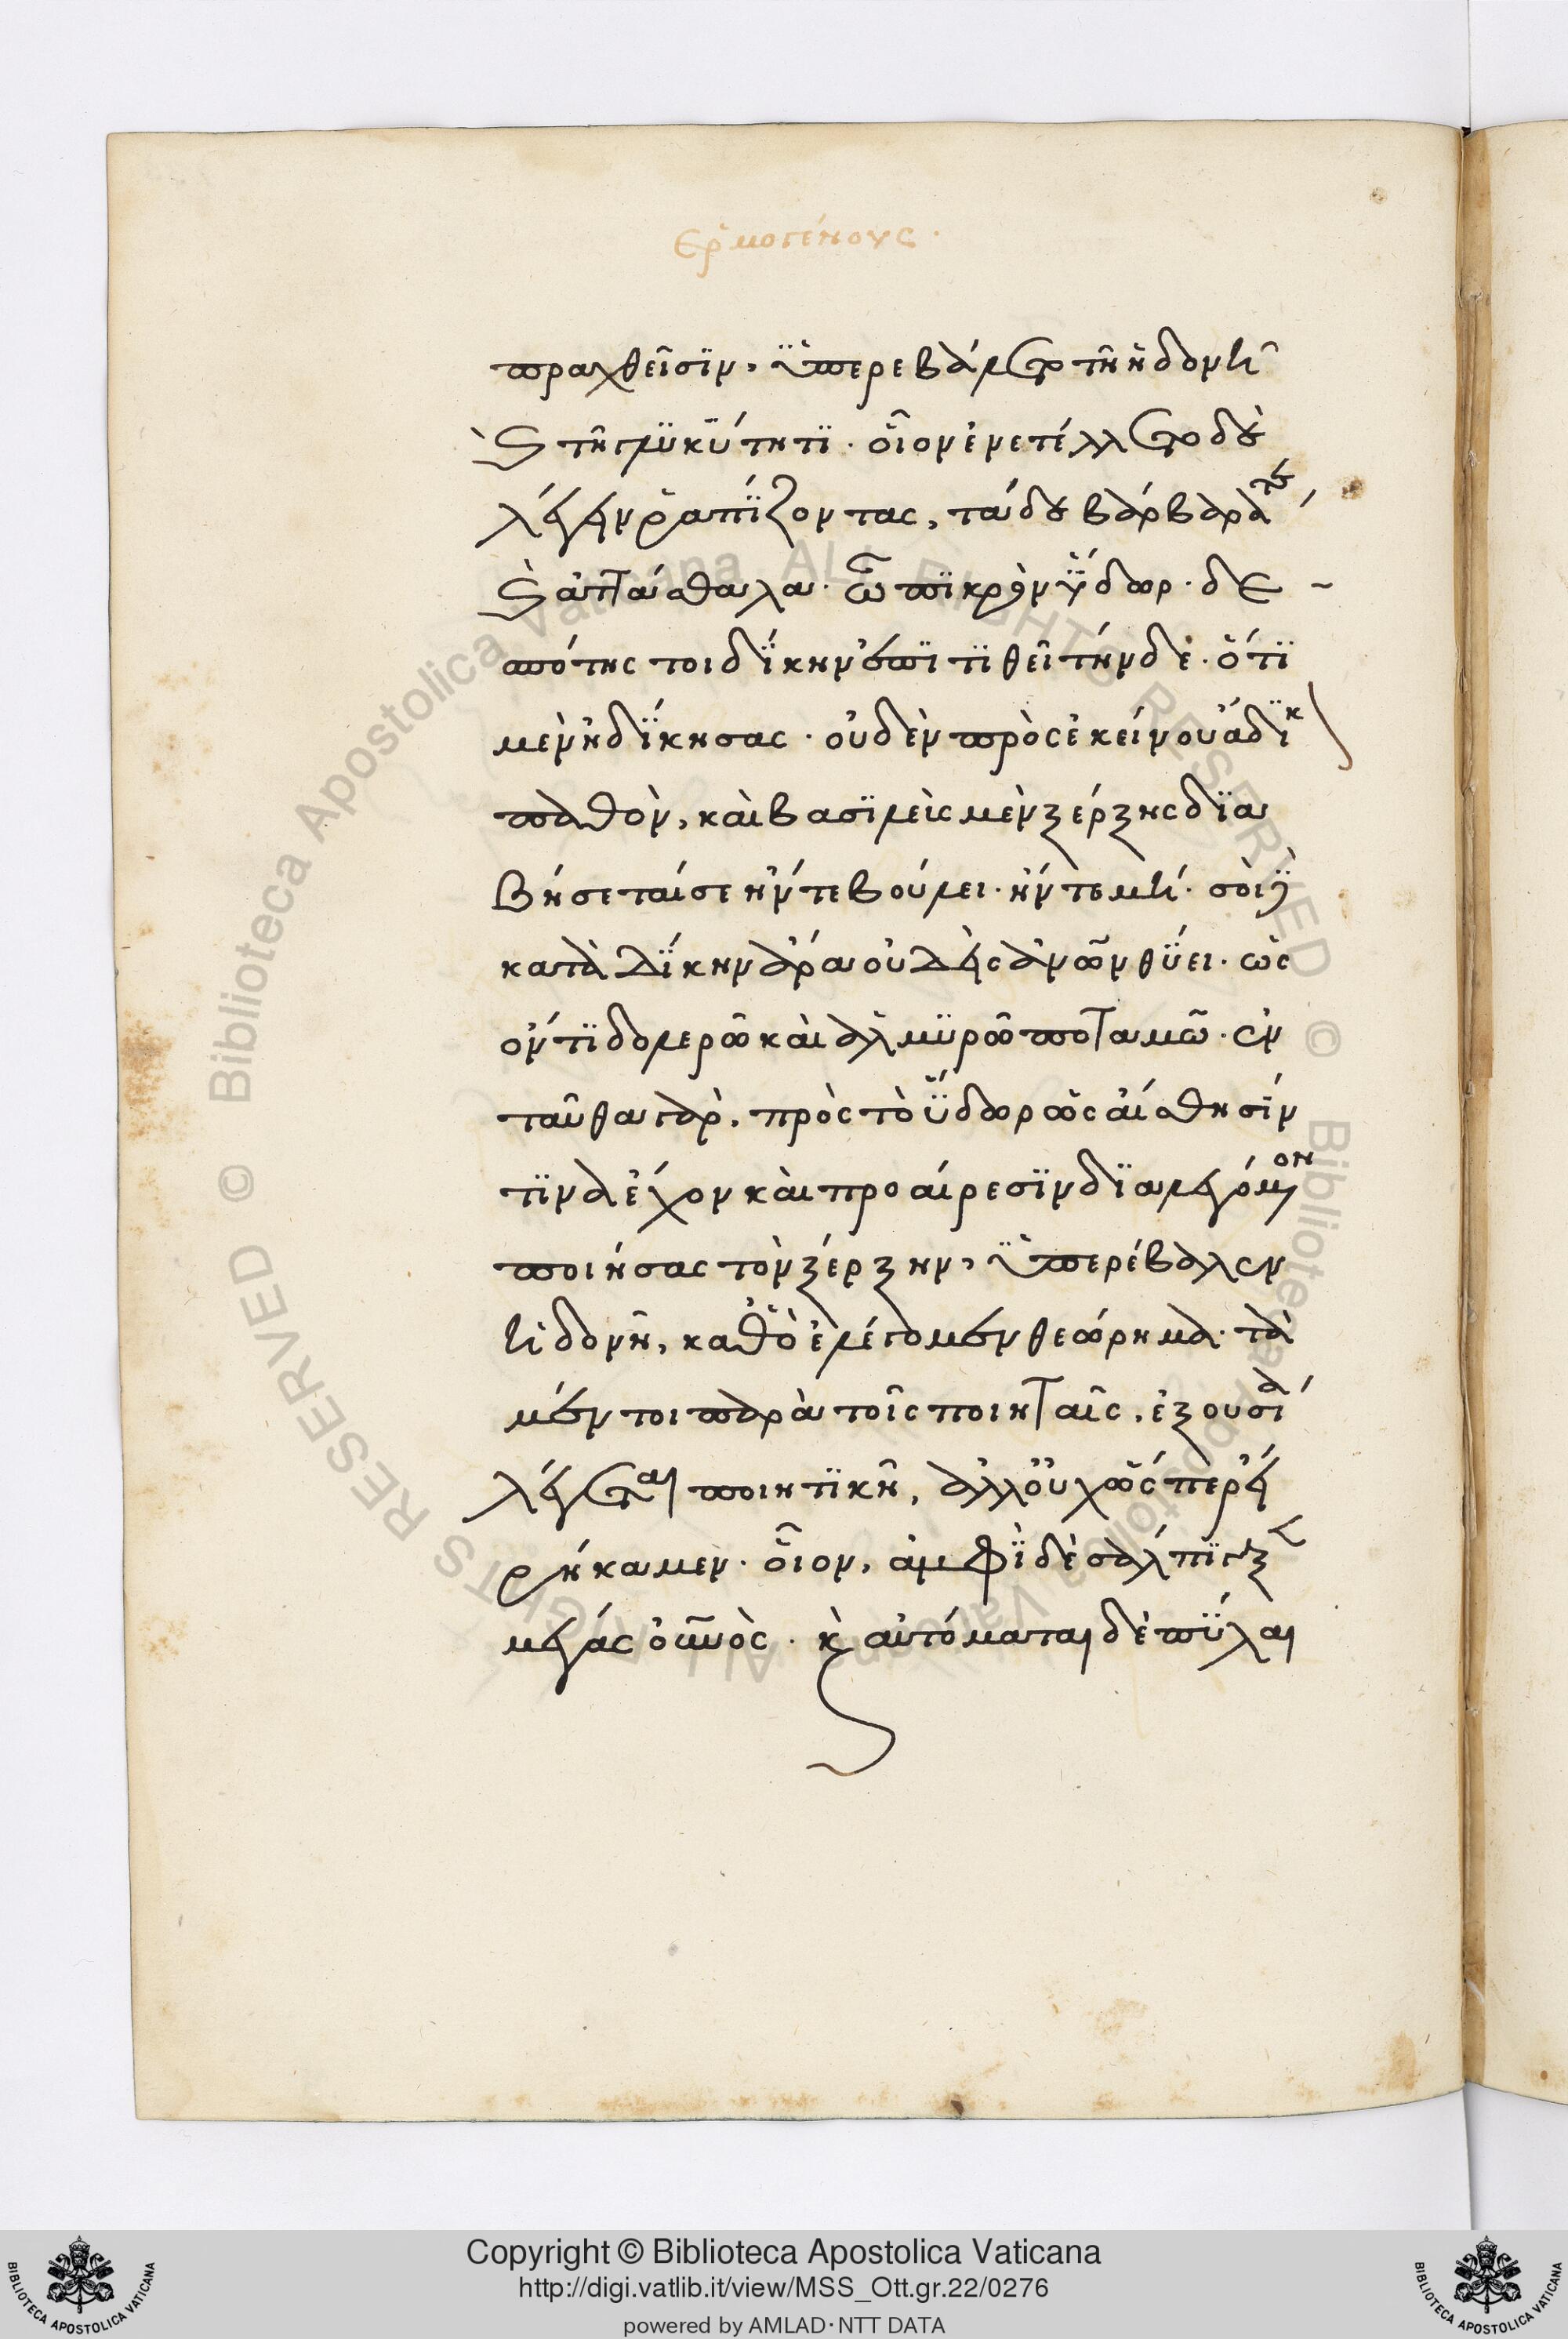 Ερμογένους.
πραχθεῖσϊν, ϋπερεβάλετο τῆ ἡδονῆ
καὶ τῆ γλϋκΰτητϊ. οἷον ἐνετέλλετο δὲ
λέγειν ῥαπΐζοντας, τάδε βάρβαρά τε
καὶ ἀτάσθαλα. ὦ πϊκρὸν ϋ̔́δωρ. δε
σπότης τοι δΐκην ἐπϊτϊθεῖ τήνδε. ὅτϊ
μὲν ἠδΐκησας. οὐδὲν πρὸς ἐκείνου ἄδϊκ
παθὸν, καὶ βασϊλεὺς μὲν ξέρξης δϊα
βήσεταί σε ἤν τε βούλει. ἤν τε μή. σοὶ δὲ
κατὰ δΐκην ἄρα οὐδεὶς ἀνων θΰει. ὡς
ὄντϊ δολερῶ καὶ ἁλμϋρῶ ποταμῶ. ἐν
ταῦθα γὰρ, πρὸς τὸ ϋ̔́δωρ ὡς αἴσθησϊν
τϊνὰ ἔχον καὶ προαίρεσϊν δϊαλεγόμενον
ποιήσας τὸν ξέρξην, ϋπερέβαλεν
ἡδονῆ, καθὸ ἐλέγομεν θεώρημα. τὰ
μέντοι παρὰ τοῖς ποιηταῖς, ἐξουσίᾳ
λέγεται ποιητϊκῆ, ἀλλ' οὐχ ὥσπερ εἰ
ρήκαμεν. οἷον, ἀμφϊ δὲ σάλπϊγξε
μέγας οὐνος. κ αὐτόμαται δὲ πΰλαι
Copyright © Biblioteca Apostolica Vaticana
http://digi.vatlib.it/view/MSS_Ott.gr.22/0276
powered by AMLAD·NTT DATA
BIBLIOTECA APOSTOLICA VATICANA
BIBLIOTECA APOSTOLICA VATICANA